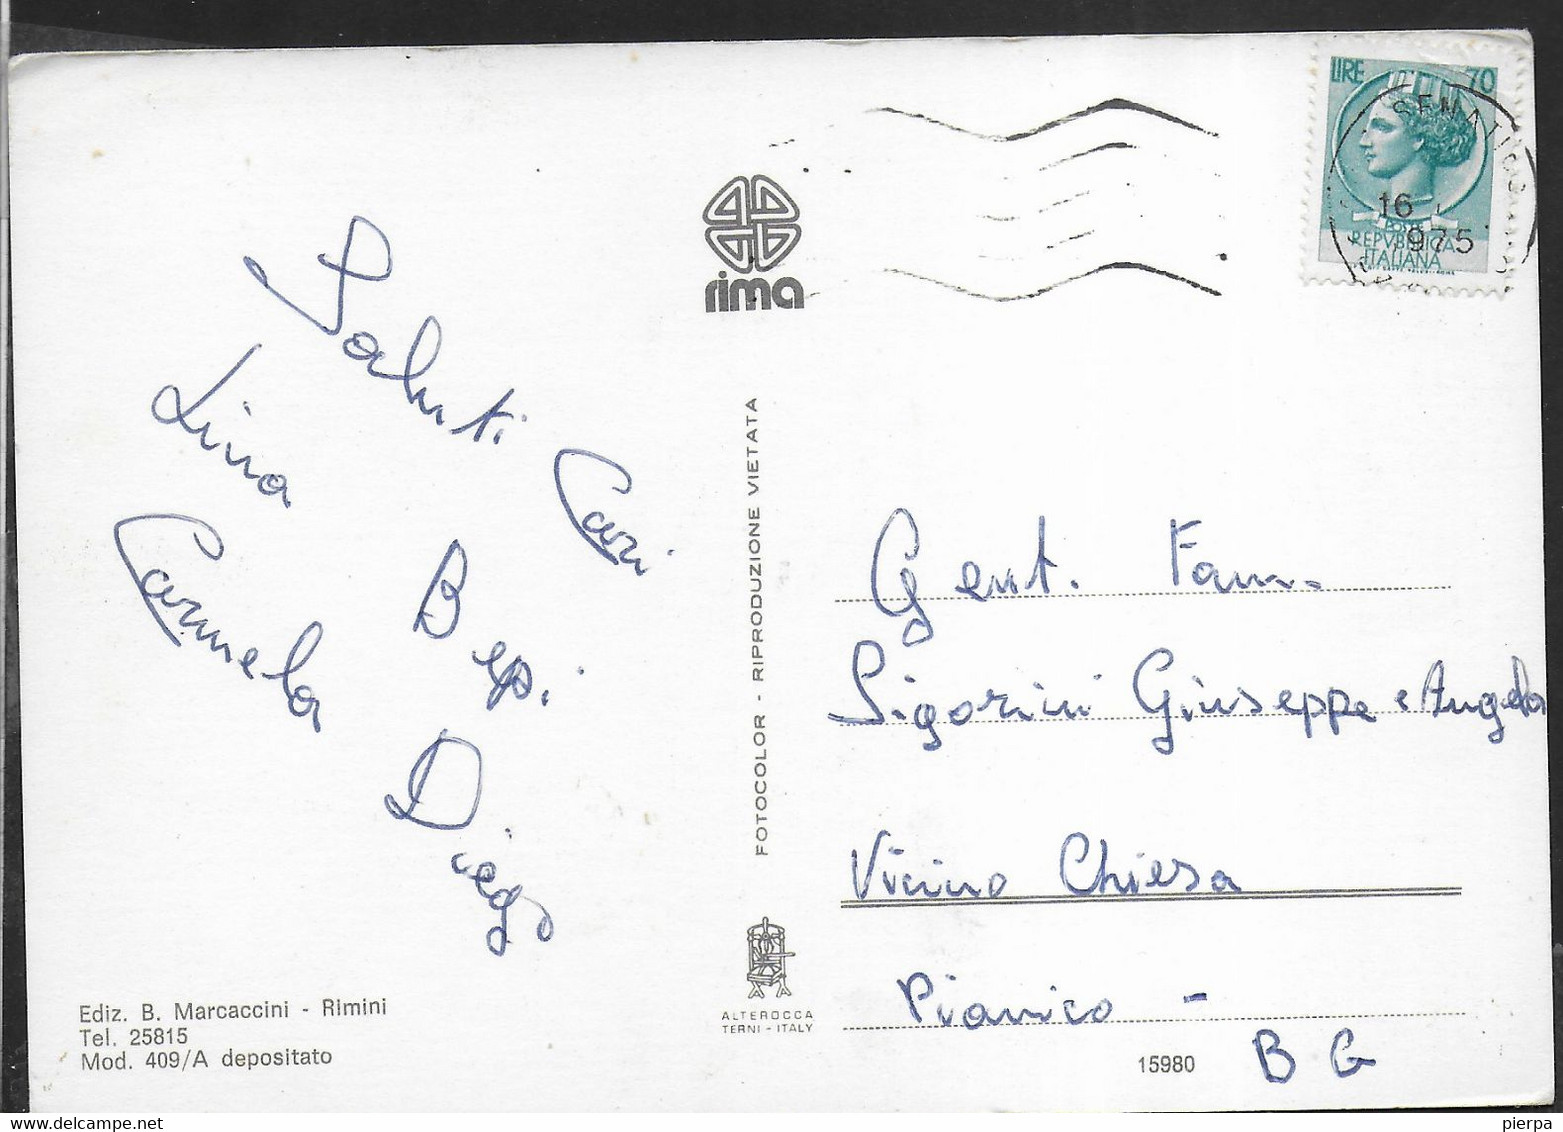 LIRE 70
SENATICO
16
975
POSTE
REPVBBLICA
ITALIANA
rima
Saluti Cari
Lina Bepi
Carmela Diego
FOTOCOLOR - RIPRODUZIONE VIETATA
Gent. Fam.
Sigorini Giuseppe e Angela
Vicino Chiesa
Pianico -
B G
Ediz. B. Marcaccini - Rimini
Tel. 25815
Mod. 409/A depositato
ALTEROCCA
TERNI - ITALY
15980
pierpa